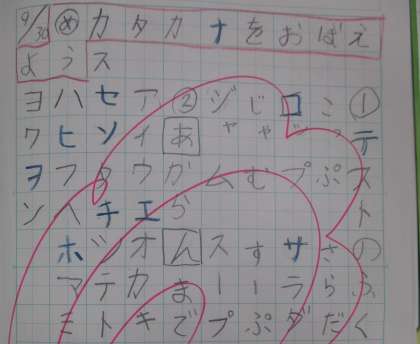 9/30 め カタカナをおぼえ
よう ス
①テストのふく
こっぷ さらだ
コップ サラダ
じゃむ すーぷ
ジャム スープ
②あから んまで
アイウエオカキ
セソタチツテト
ハヒフヘホマミ
ヨワヲン